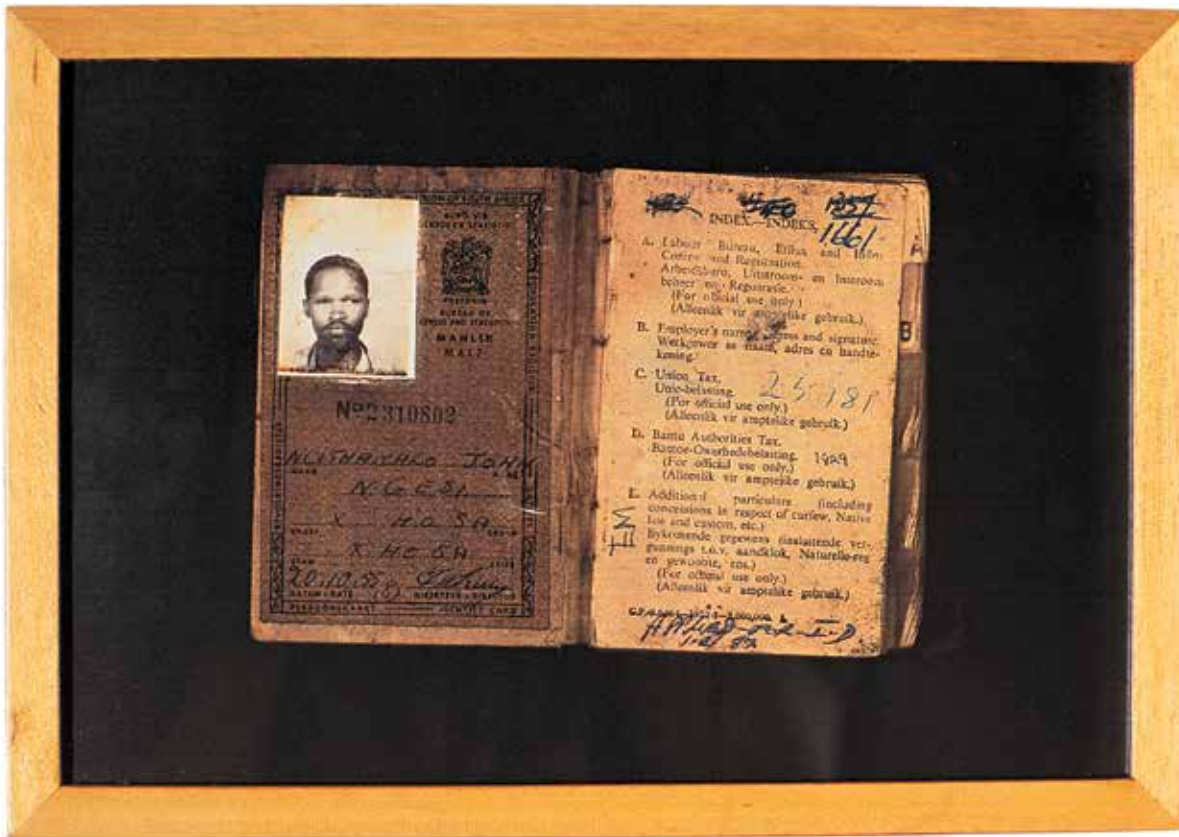 UNION OF SOUTH AFRICA
PRETORIA
BUREAU OF
CENSUS AND STATISTICS
MANLIK
MALE
No 2310802
JOHN
NAME
NGESI
X HOSA
GROUP
XHOSA
20.10.5
DATUM - DATE
PERSOONSKAART IDENTITY CARD
1357
INDEX—INDEKS
1661
A. Labour Bureau, Efflux and Influx
Control and Registration.
Arbeidsburo, Uitstroom- en Instroom-
beheer en Registrasie.
(For official use only.)
(Alleenlik vir amptelike gebruik.)
B. Employer's name, address and signature.
Werkgewer se naam, adres en handte-
kening.
C. Union Tax.
Unie-belasting.
(For official use only.)
(Alleenlik vir amptelike gebruik.)
25 781
D. Bantu Authorities Tax.
Bantoe-Owerhedebelasting.
1829
(For official use only.)
(Alleenlik vir amptelike gebruik.)
E. Additional particulars (including
concessions in respect of curfew, Native
law and custom, etc.)
Bykomende gegewens (insluitende ver-
gunnings t.o.v. aandklok, Naturelle-reg
en gewoonte, ens.)
(For official use only.)
(Alleenlik vir amptelike gebruik.)
EM
B